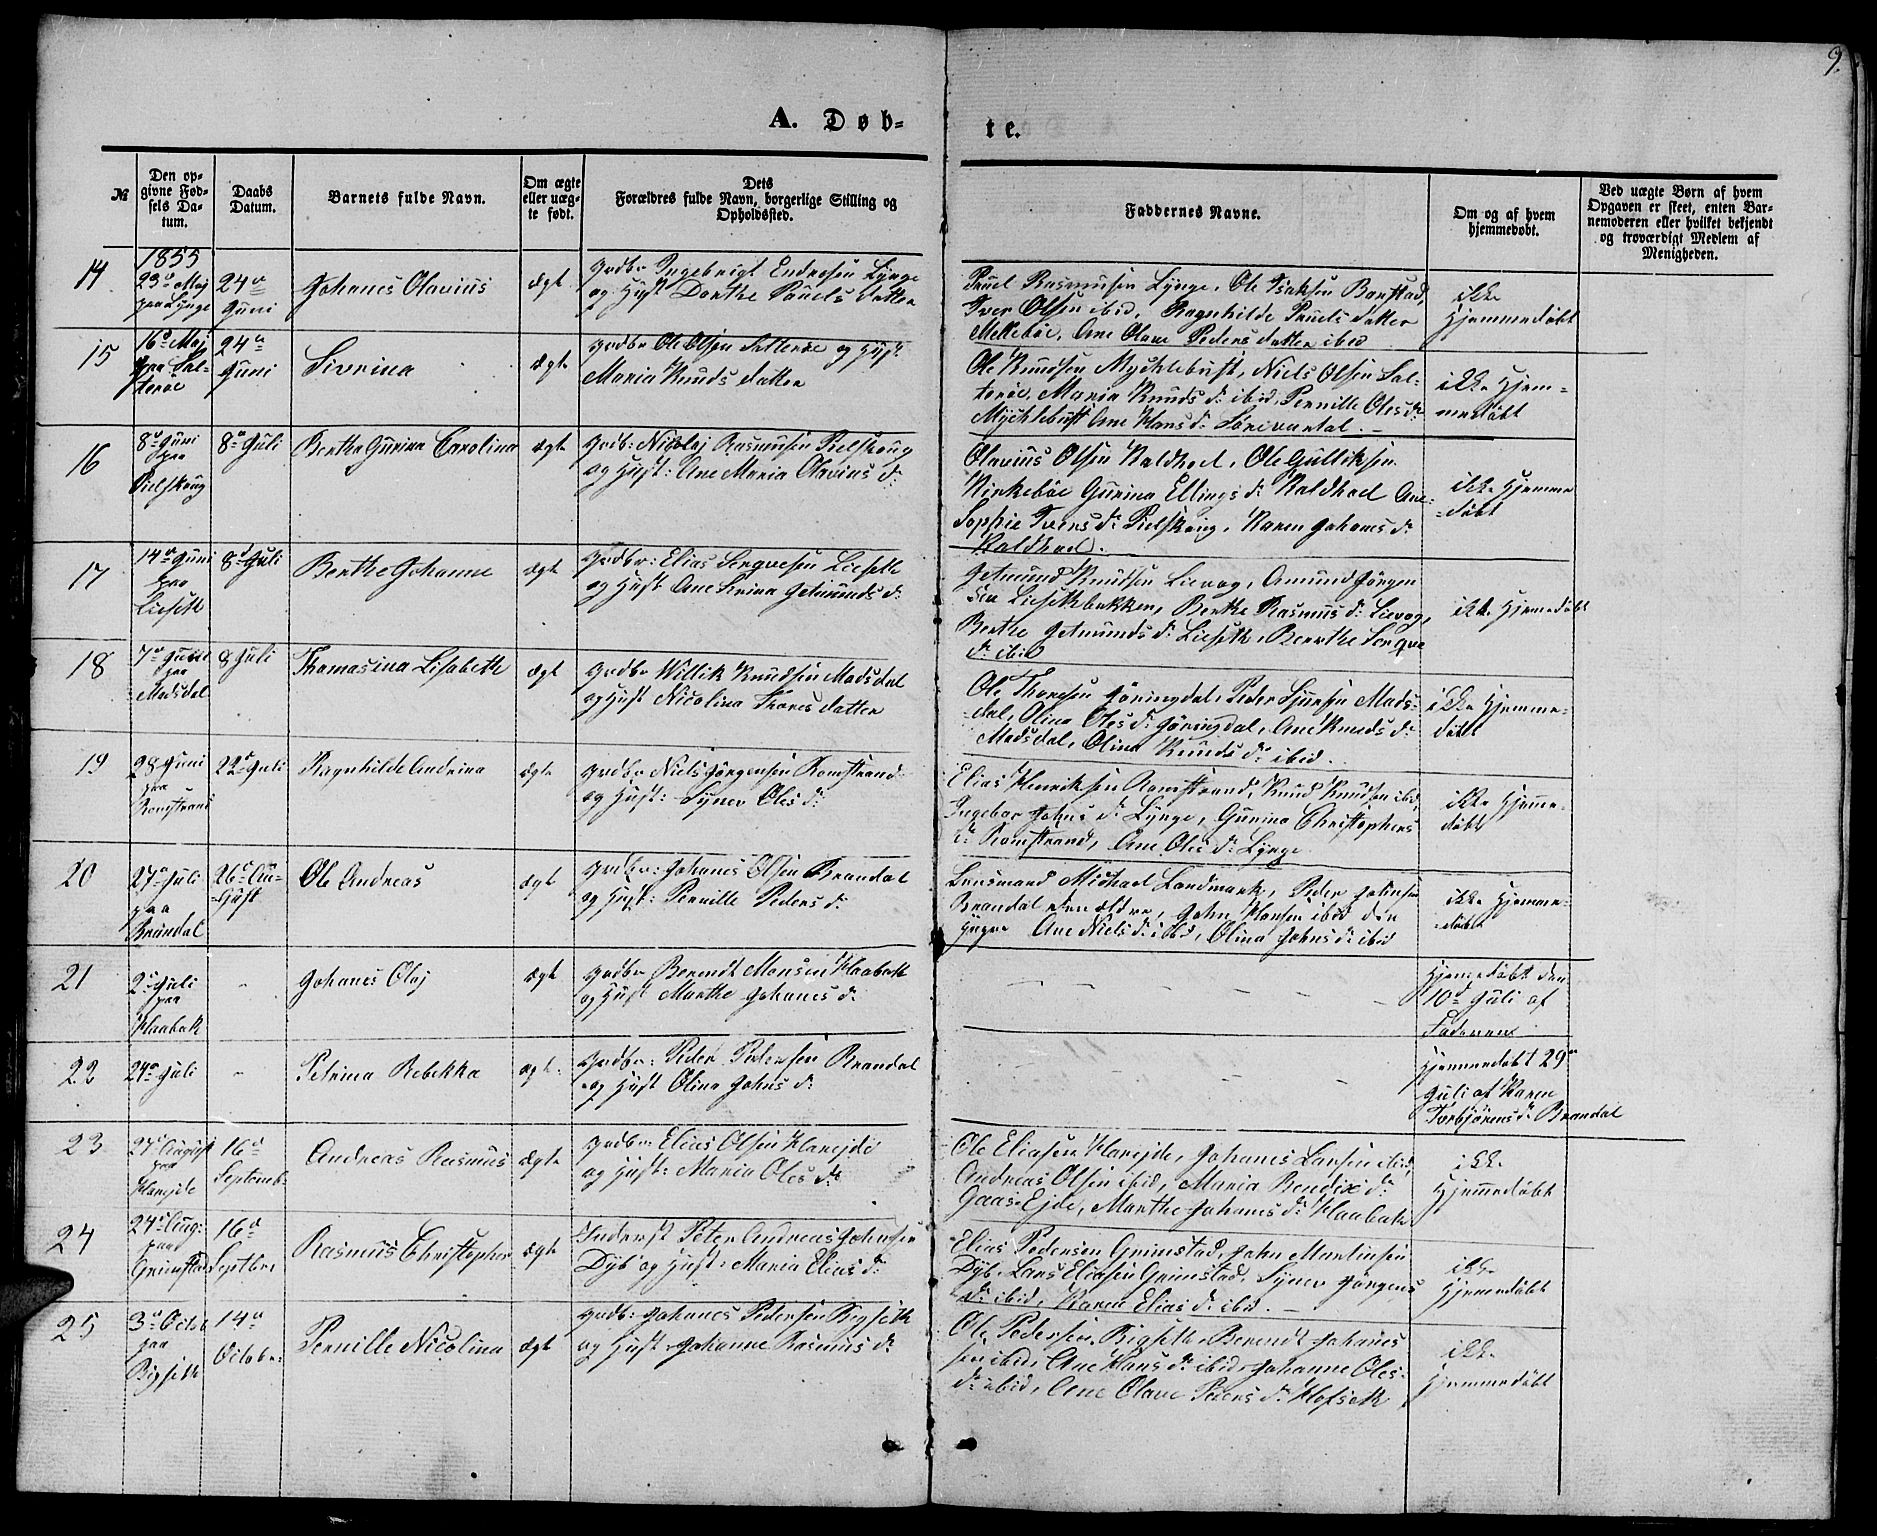 9.
A. Døb-
te.
№
Den op-
givne Fød-
sels Da-
tum.
Daabs
Datum.
Barnets fulde Navn.
Om ægte
eller uæg-
te født.
Dets
Forældres fulde Navn, borgerlige Stilling og
Opholdssted.
Faddernes Navne.
Om og af hvem
hjemmedøbt.
Ved uægte Børn af hvem
Opgaven er skeet, enten Bar-
nemoderen eller hvilket bekjendt
og troværdigt Medlem af
Menigheden.
1855
14
23de Maj
paa Lynge
24de
Juni
Johanes Olavius
ægt
Grdbr Ingebrigt Endresen Lynge
og Hust Dorthe Pouels datter
Pouel Rasmusen Lynge, Ole Isaksen Barstad,
Iver Olsen ibid, Ragnhilde Pouels datter
Mekkebøe, Ane Olave Peders datter ibid
ikke
Hjemmedøbt
15
16de Maj
paa Sal-
terøe
24de
Juni
Sivrina
ægt
Grdbr Ole Olsen Salterøe og Hust
Maria Knuds datter
Ole Knudsen Mychlebust, Niels Olsen Sal-
terøe, Maria Knuds dr ibid, Pernille Oles dr
Mychlebust Ane Hans dr
ikke Hjem-
medøbt
16
8de Juni
paa
Pielskoug
8de Juli
Berthe Gurina Carolina
ægt
Grdb: Nicolaj Rasmusen Pielskoug
og Hust: Ane Maria Olavius dr
Olavius Olsen Kaldhoel, Ole Gulliksen
Kirkebøe Gurina Ellings dr Kaldhoel Ane
Sophie Ivers dr Pielskoug, Karen Johanes dr
Kaldhoel.
ikke Hjemme
døbt
17
14de Juni
paa
Lieseth
8de Juli
Berthe Johanne
ægt
Grdbr: Elias Seqvesen Lieseth
og Hust Ane Sivrina Getmunds dr
Getmund Knudsen Lievog, Amund Jørgen
sen Liesethbakken, Berthe Rasmus dr Lievog,
Berthe Getmunds dr Lieseth, Berthe
dr ibid
ikke Hjemedøbt
18
7de Juni
paa
Madsdal
8 Juli
Thomasina Lisabeth
ægt
Grdbr Willik Knudsen Madsdal
og Hust Nicolina Thores datter
Ole Thoresen Jøringdal, Peder Sjursen Mads-
dal, Olina Oles dr Jøringdal, Ane Knuds dr
Madsdal, Olina Knuds dr ibid.
ikke Hjemme-
døbt
19
28 Juni
paa
Romstrand
22de Juli
Ragnhilde Andrina
ægte
Grdbr Niels Jørgensen Romstrand
og Hust: Synev Oles dr
Elias Henriksen Romstrand, Knud Knudsen ibid,
Ingebor Johns dr Lynge, Gurina Christophers
dr Romstrand, Ane Oles dr Lynge
ikke Hjemme-
døbt
20
27de Juli
paa
Brandal
26de Au-
gust
Ole Andreas
ægt
Grdbr: Johanes Olsen Brandal
og Hust: Pernille Peders dr
Lensmand Michael Landmark, Peder Johnsen
Brandal den ældre, John Hansen ibid den
yngre Ane Niels dr ibid, Olina Johns dr ibid
ikke Hjemme-
døbt
21
2de Juli
paa
Haabak
-
Johanes Olaj
ægt
Grdbr Berendt Monsen Haabak
og Hust Marthe Johanes dr
Hjemedøbt den
10de Juli af
Faderen
22
24de Juli
-
Petrina Rebekka
ægt
Grdbr: Peder Pedersen Brandal
og Hust Olina Johns dr
Hjemmedøbt 29de
Juli af Karen
Torbjørens dr Brandal
23
27de August
paa
Hareide
16de
Septemb.
Andreas Rasmus
ægte
Grdbr: Elias Olsen Hareide
og Hust: Maria Oles dr
Ole Eliasen Hareide, Johanes Larsen ibid,
Andreas Olsen ibid, Maria Bendix dr
Gaas-Ejde, Marthe Johanes dr Haabak
ikke
Hjemmedøbt
24
24de Aug:
paa
Grimstad
16de
Septbr.
Rasmus Christopher
ægt
Inderst Peter Andreas Johnsen
Dyb og Hust: Maria Elias dr
Elias Pedersen Grimstad, John Martinsen
Dyb, Lars Eliasen Grimstad, Synev Jørgens
dr ibid, Karen Elias dr ibid.
ikke
Hjemedøbt
25
3de Octbr
paa
Bigseth
14de
Octobr:
Pernille Nicolina
ægt
Grdb: Johanes Pedersen Bigseth
og Hust Johanne Rasmus dr
Ole Pedersen Bigseth Berendt Johanes
sen ibid, Ane Hans dr ibid, Johanne Oles-
dr ibid, Ane Olave Peders dr Hofseth
ikke
Hjemmedøbt